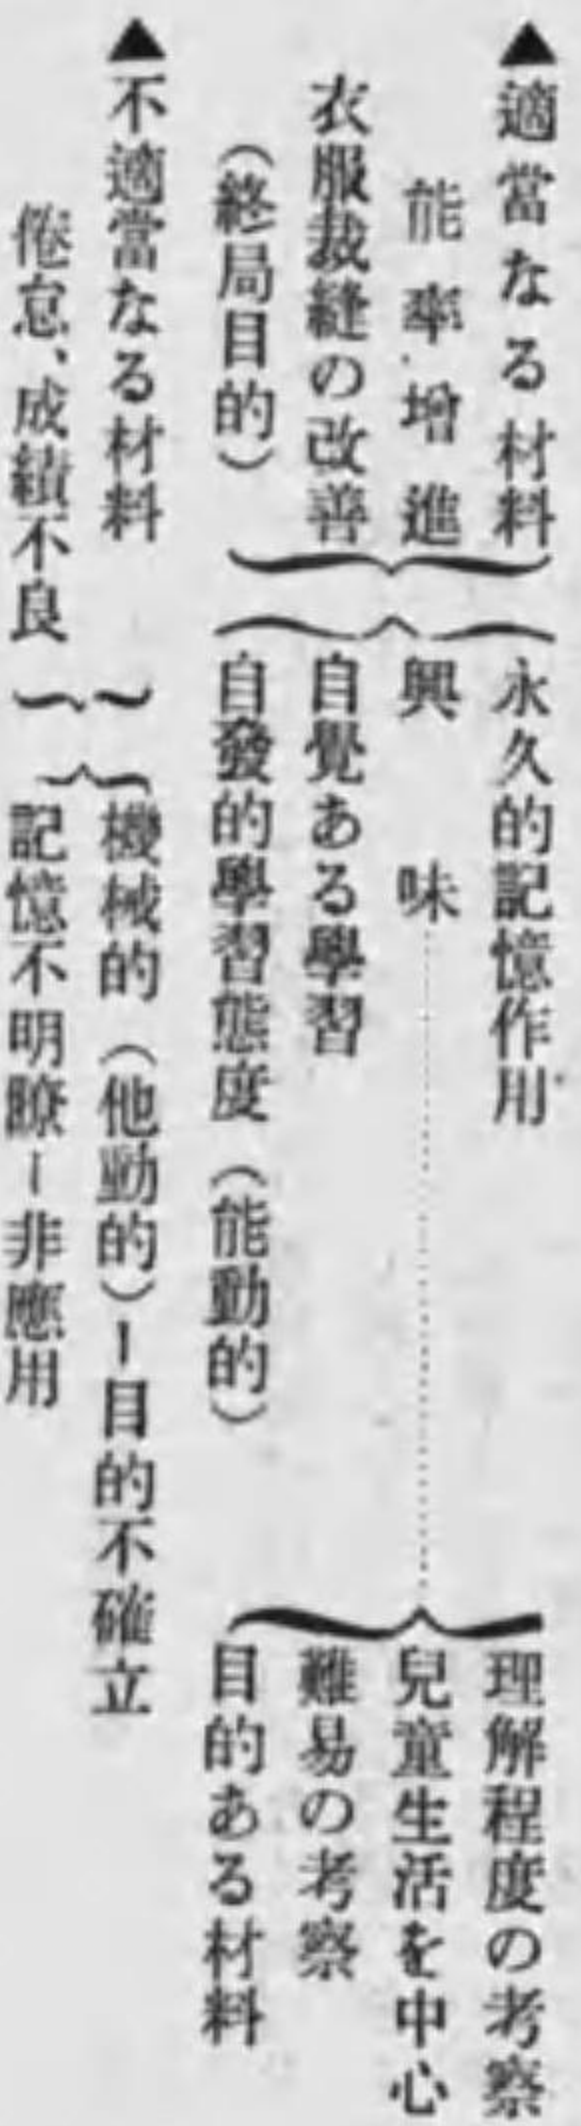 ▲適當なる材料
能率增進
衣服裁縫の改善
(終局目的)
永久的記憶作用
興味
自覺ある學習
自發的學習態度(能動的)
理解程度の考察
兒童生活を中心
難易の考察
目的ある材料
▲不適當なる材料
倦怠、成績不良
機械的(他動的)ー目的不確立
記憶不明瞭ー非應用